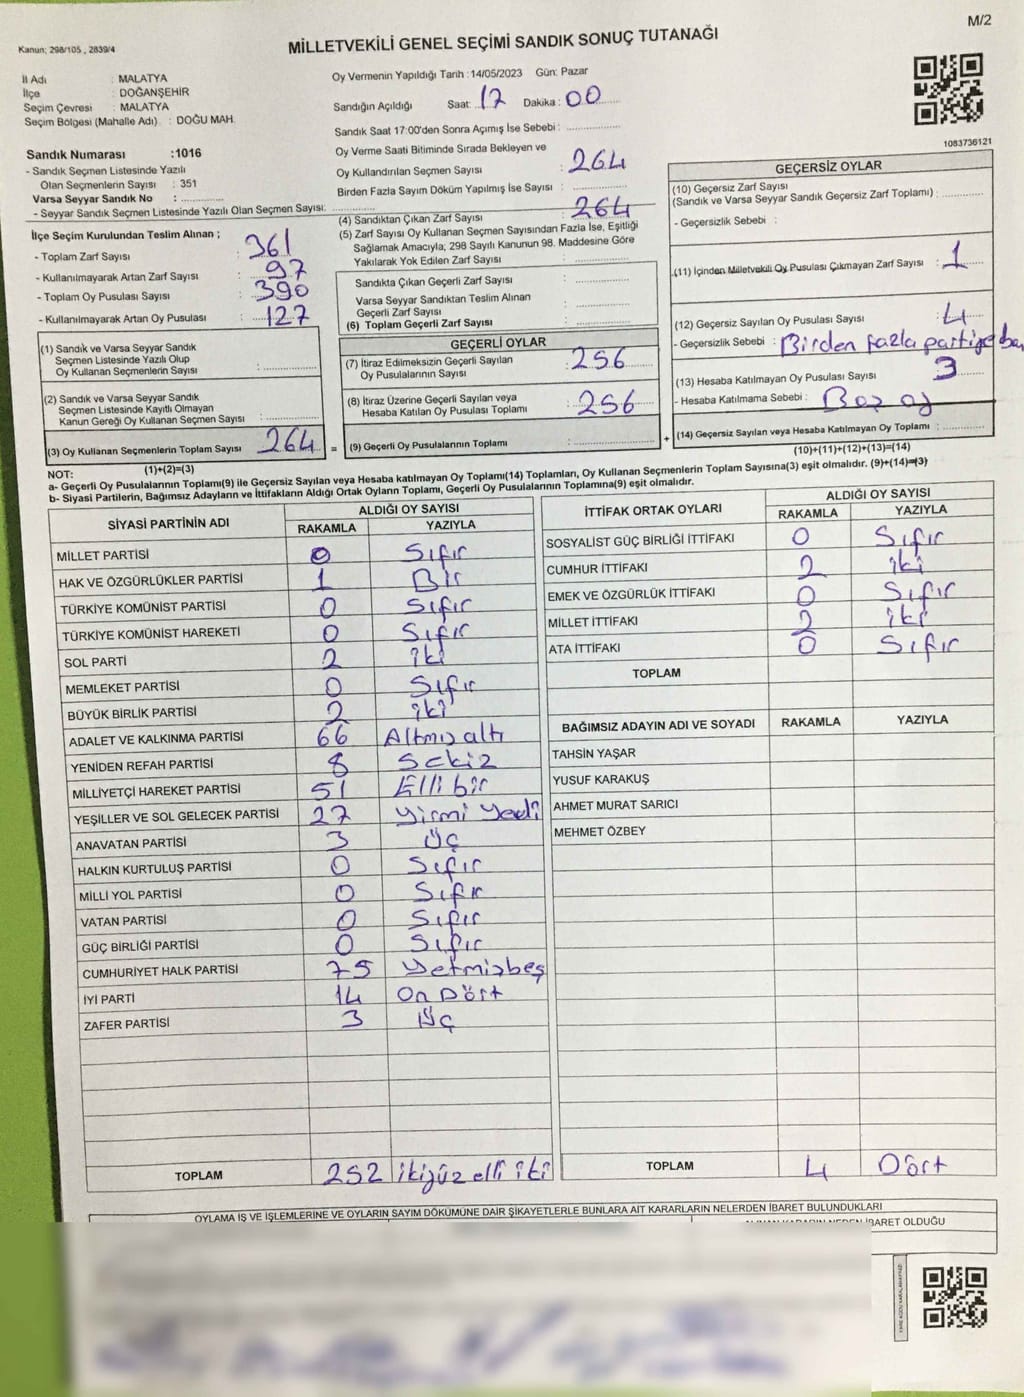 M/2
Kanun; 298/105 , 2839/4
MİLLETVEKİLİ GENEL SEÇİMİ SANDIK SONUÇ TUTANAĞI
İl Adı : MALATYA
İlçe : DOĞANŞEHİR
Seçim Çevresi : MALATYA
Seçim Bölgesi (Mahalle Adı) : DOĞU MAH.
Sandık Numarası :1016
- Sandık Seçmen Listesinde Yazılı
Olan Seçmenlerin Sayısı : 351
Varsa Seyyar Sandık No :
- Seyyar Sandık Seçmen Listesinde Yazılı Olan Seçmen Sayısı:
İlçe Seçim Kurulundan Teslim Alınan ;
- Toplam Zarf Sayısı : 361
- Kullanılmayarak Artan Zarf Sayısı : 97
- Toplam Oy Pusulası Sayısı : 390
- Kullanılmayarak Artan Oy Pusulası : 127
(1) Sandık ve Varsa Seyyar Sandık
Seçmen Listesinde Yazılı Olup
Oy Kullanan Seçmenlerin Sayısı :
(2) Sandık ve Varsa Seyyar Sandık
Seçmen Listesinde Kayıtlı Olmayan
Kanun Gereği Oy Kullanan Seçmen Sayısı :
(3) Oy Kullanan Seçmenlerin Toplam Sayısı 264
(1)+(2)=(3)
Oy Vermenin Yapıldığı Tarih :14/05/2023 Gün: Pazar
Sandığın Açıldığı Saat: 17 Dakika : 00
Sandık Saat 17:00'den Sonra Açımış İse Sebebi :
Oy Verme Saati Bitiminde Sırada Bekleyen ve
Oy Kullandırılan Seçmen Sayısı : 264
Birden Fazla Sayım Döküm Yapılmış İse Sayısı :
(4) Sandıktan Çıkan Zarf Sayısı : 264
(5) Zarf Sayısı Oy Kullanan Seçmen Sayısından Fazla İse, Eşitliği
Sağlamak Amacıyla; 298 Sayılı Kanunun 98. Maddesine Göre
Yakılarak Yok Edilen Zarf Sayısı :
Sandıkta Çıkan Geçerli Zarf Sayısı :
Varsa Seyyar Sandıktan Teslim Alınan
Geçerli Zarf Sayısı :
(6) Toplam Geçerli Zarf Sayısı :
GEÇERLİ OYLAR
(7) İtiraz Edilmeksizin Geçerli Sayılan
Oy Pusulalarının Sayısı : 256
(8) İtiraz Üzerine Geçerli Sayılan veya
Hesaba Katılan Oy Pusulası Toplamı : 256
= (9) Geçerli Oy Pusulalarının Toplamı : +
1083736121
GEÇERSİZ OYLAR
(10) Geçersiz Zarf Sayısı
(Sandık ve Varsa Seyyar Sandık Geçersiz Zarf Toplamı) :
- Geçersizlik Sebebi :
(11) İçinden Milletvekili Oy Pusulası Çıkmayan Zarf Sayısı : 1
(12) Geçersiz Sayılan Oy Pusulası Sayısı : 4
- Geçersizlik Sebebi : Birden fazla partiye
(13) Hesaba Katılmayan Oy Pusulası Sayısı : 3
- Hesaba Katılmama Sebebi : Boş oy
(14) Geçersiz Sayılan veya Hesaba Katılmayan Oy Toplamı :
(10)+(11)+(12)+(13)=(14)
NOT:
a- Geçerli Oy Pusulalarının Toplamı(9) ile Geçersiz Sayılan veya Hesaba katılmayan Oy Toplamı(14) Toplamları, Oy Kullanan Seçmenlerin Toplam Sayısına(3) eşit olmalıdır. (9)+(14)=(3)
b- Siyasi Partilerin, Bağımsız Adayların ve İttifakların Aldığı Ortak Oyların Toplamı, Geçerli Oy Pusulalarının Toplamına(9) eşit olmalıdır.
SİYASİ PARTİNİN ADI ALDIĞI OY SAYISI
RAKAMLA YAZIYLA
MİLLET PARTİSİ 0 Sıfır
HAK VE ÖZGÜRLÜKLER PARTİSİ 1 Bir
TÜRKİYE KOMÜNİST PARTİSİ 0 Sıfır
TÜRKİYE KOMÜNİST HAREKETİ 0 Sıfır
SOL PARTİ 2 iki
MEMLEKET PARTİSİ 0 Sıfır
BÜYÜK BİRLİK PARTİSİ 2 iki
ADALET VE KALKINMA PARTİSİ 66 Altmış altı
YENİDEN REFAH PARTİSİ 8 Sekiz
MİLLİYETÇİ HAREKET PARTİSİ 51 Elli bir
YEŞİLLER VE SOL GELECEK PARTİSİ 27 Yirmi Yedi
ANAVATAN PARTİSİ 3 Üç
HALKIN KURTULUŞ PARTİSİ 0 Sıfır
MİLLİ YOL PARTİSİ 0 Sıfır
VATAN PARTİSİ 0 Sıfır
GÜÇ BİRLİĞİ PARTİSİ 0 Sıfır
CUMHURİYET HALK PARTİSİ 75 Yetmişbeş
İYİ PARTİ 14 On Dört
ZAFER PARTİSİ 3 Üç
TOPLAM 252 ikiyüz elli iki
İTTİFAK ORTAK OYLARI ALDIĞI OY SAYISI
RAKAMLA YAZIYLA
SOSYALİST GÜÇ BİRLİĞİ İTTİFAKI 0 Sıfır
CUMHUR İTTİFAKI 2 iki
EMEK VE ÖZGÜRLÜK İTTİFAKI 0 Sıfır
MİLLET İTTİFAKI 2 iki
ATA İTTİFAKI 0 Sıfır
TOPLAM
BAĞIMSIZ ADAYIN ADI VE SOYADI RAKAMLA YAZIYLA
TAHSİN YAŞAR
YUSUF KARAKUŞ
AHMET MURAT SARICI
MEHMET ÖZBEY
TOPLAM 4 Dört
OYLAMA İŞ VE İŞLEMLERİNE VE OYLARIN SAYIM DÖKÜMÜNE DAİR ŞİKAYETLERLE BUNLARA AİT KARARLARIN NELERDEN İBARET BULUNDUKLARI
İBARET OLDUĞU